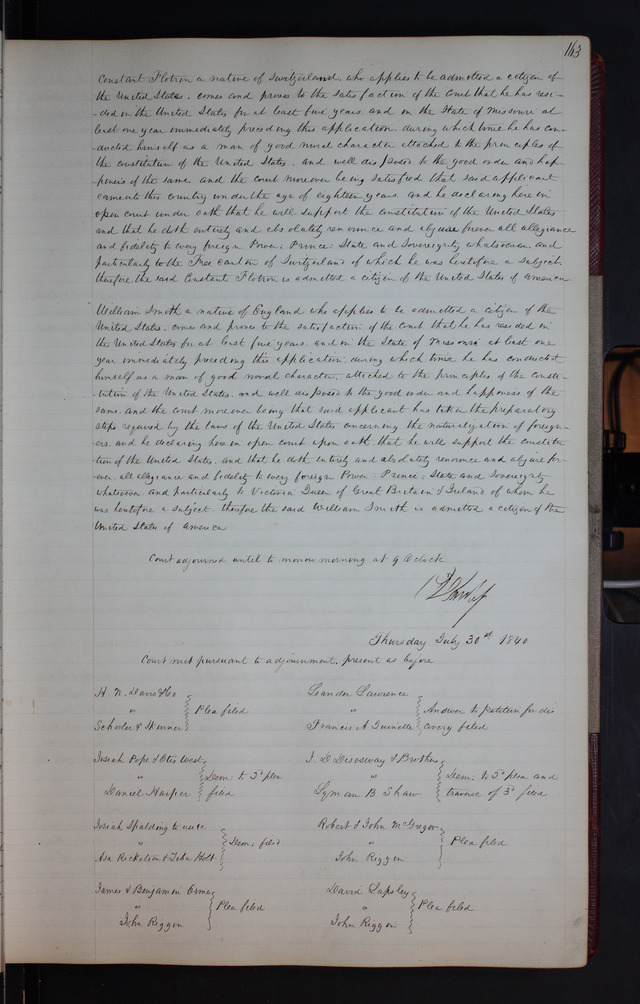 163
Constant Flotron a native of Switzerland, who applies to be admitted a citizen of
the United States, comes and proves to the satisfaction of the Court that he has resi-
-ded in the United States for at least five years and in the State of Missouri at
least one year immediately preceding this application, during which time he has con-
ducted himself as a man of good moral character attached to the principles of
the constitution of the United States, and well disposed to the good order and hap-
piness of the same, and the court moreover being satisfied that said applicant
came into this country under the age of eighteen years, and he declaring here in
open court under oath that he will support the constitution of the United States
and that he doth entirely and absolutely renounce and abjure forever all allegiance
and fidelity to every foreign Power, Prince, State and Sovereignty whatsoever and
particularly to the Free canton of Switzerland of which he was heretofore a subject,
therefore the said Constant Flotron is admitted a citizen of the United States of America
William Smith a native of England who applies to be admitted a citizen of the
United States, comes and proves to the satisfaction of the court that he has resided in
the United States for at least five years and in the State of Missouri at least one
year immediately preceding this application, during which time he has conducted
himself as a man of good moral character, attached to the principles of the consti-
-tution of the United States, and well disposed to the good order and happiness of the
same, and the court moreover being that said applicant has taken the preparatory
steps required by the laws of the United States concerning the naturalization of foreign-
ers, and he declaring here in open court upon oath that he will support the constitu-
tion of the United States, and that he doth entirely and absolutely renounce and abjure for-
ever all allegiance and fidelity to every foreign Power, Prince, State and Sovereignty
whatsoever and particularly to Victoria Queen of Great Britain & Ireland of whom he
was heretofore a subject, therefore the said William Smith is admitted a citizen of the
United States of America
Court adjourned until to morrow morning at 9 O'clock
Thursday July 30th 1840
Court met pursuant to adjournment, present as before
H. N. Davis & Co
" Plea filed
Schooler & Skinner
Leander Lawrence
" Answer to petition for dis
Francis A covery filed
Josiah Pope & Otis West
" Dem: to 2d plea
Daniel Harper filed
J. D Disosway & Brothers
" Dem: to 2d plea and
Lyman B Shaw traverse of 3d filed
Josiah Spalding to use &c
" Dem: filed
Asa Ricketson &
Robert & John McGregor
" Plea filed
John Riggin
James & Benjamin
" Plea filed
John Riggin
David Tapsley
" Plea filed
John Riggin